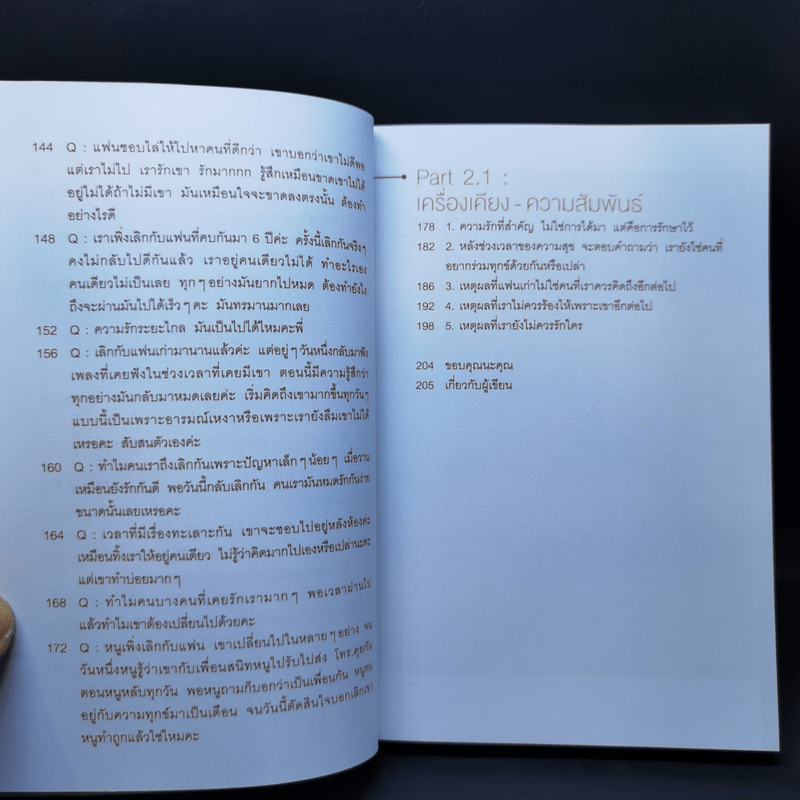 144 Q : แฟนชอบไล่ให้ไปหาคนที่ดีกว่า เขาบอกว่าเขาไม่ดีพอ
แต่เราไม่ไป เรารักเขา รักมากกก รู้สึกเหมือนขาดเขาไม่ได้
อยู่ไม่ได้ถ้าไม่มีเขา มันเหมือนใจจะขาดลงตรงนั้น ต้องทำ
อย่างไรดี
148 Q : เราเพิ่งเลิกกับแฟนที่คบกันมา 6 ปีค่ะ ครั้งนี้เลิกกันจริงๆ
คงไม่กลับไปดีกันแล้ว เราอยู่คนเดียวไม่ได้ ทำอะไรเอง
คนเดียวไม่เป็นเลย ทุกๆอย่างมันยากไปหมด ต้องทำยังไง
ถึงจะผ่านมันไปได้เร็วๆคะ มันทรมานมากเลย
152 Q : ความรักระยะไกล มันเป็นไปได้ไหมคะพี่
156 Q : เลิกกับแฟนเก่ามานานแล้วค่ะ แต่อยู่ๆวันหนึ่งกลับมาฟัง
เพลงที่เคยฟังในช่วงเวลาที่เคยมีเขา ตอนนี้มีความรู้สึกว่า
ทุกอย่างมันกลับมาหมดเลยค่ะ เริ่มคิดถึงเขามากขึ้นทุกวันๆ
แบบนี้เป็นเพราะอารมณ์เหงาหรือเพราะเรายังลืมเขาไม่ได้
เหรอคะ สับสนตัวเองค่ะ
160 Q : ทำไมคนเราถึงเลิกกันเพราะปัญหาเล็กๆน้อยๆ เมื่อวาน
เหมือนยังรักกันดี พอวันนี้กลับเลิกกัน คนเรามันหมดรักกันง่าย
ขนาดนั้นเลยเหรอคะ
164 Q : เวลาที่มีเรื่องทะเลาะกัน เขาจะชอบไปอยู่หลังห้องค่ะ
เหมือนทิ้งเราให้อยู่คนเดียว ไม่รู้ว่าคิดมากไปเองหรือเปล่านะคะ
แต่เขาทำบ่อยมากๆ
168 Q : ทำไมคนบางคนที่เคยรักเรามากๆ พอเวลาผ่านไป
แล้วทำไมเขาต้องเปลี่ยนไปด้วยคะ
172 Q : หนูเพิ่งเลิกกับแฟน เขาเปลี่ยนไปในหลายๆอย่าง จน
วันหนึ่งหนูรู้ว่าเขากับเพื่อนสนิทหนูไปรับไปส่ง โทร.คุยกัน
ตอนหนูหลับทุกวัน พอหนูถามก็บอกว่าเป็นเพื่อนกัน หนูทน
อยู่กับความทุกข์มาเป็นเดือน จนวันนี้ตัดสินใจบอกเลิกเขา
หนูทำถูกแล้วใช่ไหมคะ
Part 2.1 :
เครื่องเคียง - ความสัมพันธ์
178 1. ความรักที่สำคัญ ไม่ใช่การได้มา แต่คือการรักษาไว้
182 2. หลังช่วงเวลาของความสุข จะตอบคำถามว่า เรายังใช่คนที่
อยากร่วมทุกข์ด้วยกันหรือเปล่า
186 3. เหตุผลที่แฟนเก่าไม่ใช่คนที่เราควรคิดถึงอีกต่อไป
192 4. เหตุผลที่เราไม่ควรร้องไห้เพราะเขาอีกต่อไป
198 5. เหตุผลที่เรายังไม่ควรรักใคร
204 ขอบคุณนะคุณ
205 เกี่ยวกับผู้เขียน